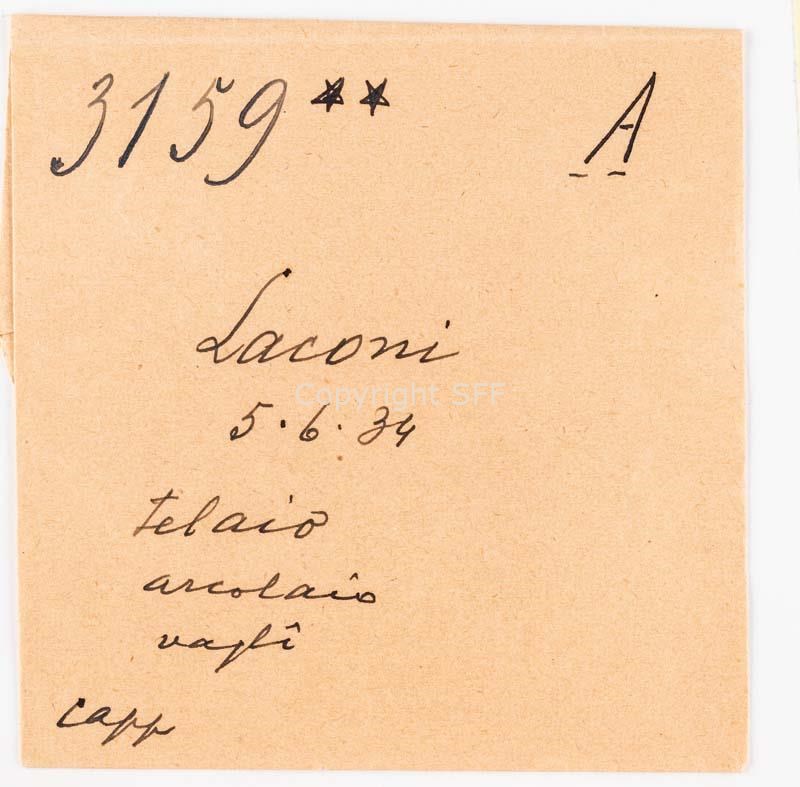 3159 ★★ A
Laconi
Copyright SFF
5.6.34
telaio
arcolaio
vaglî
capp